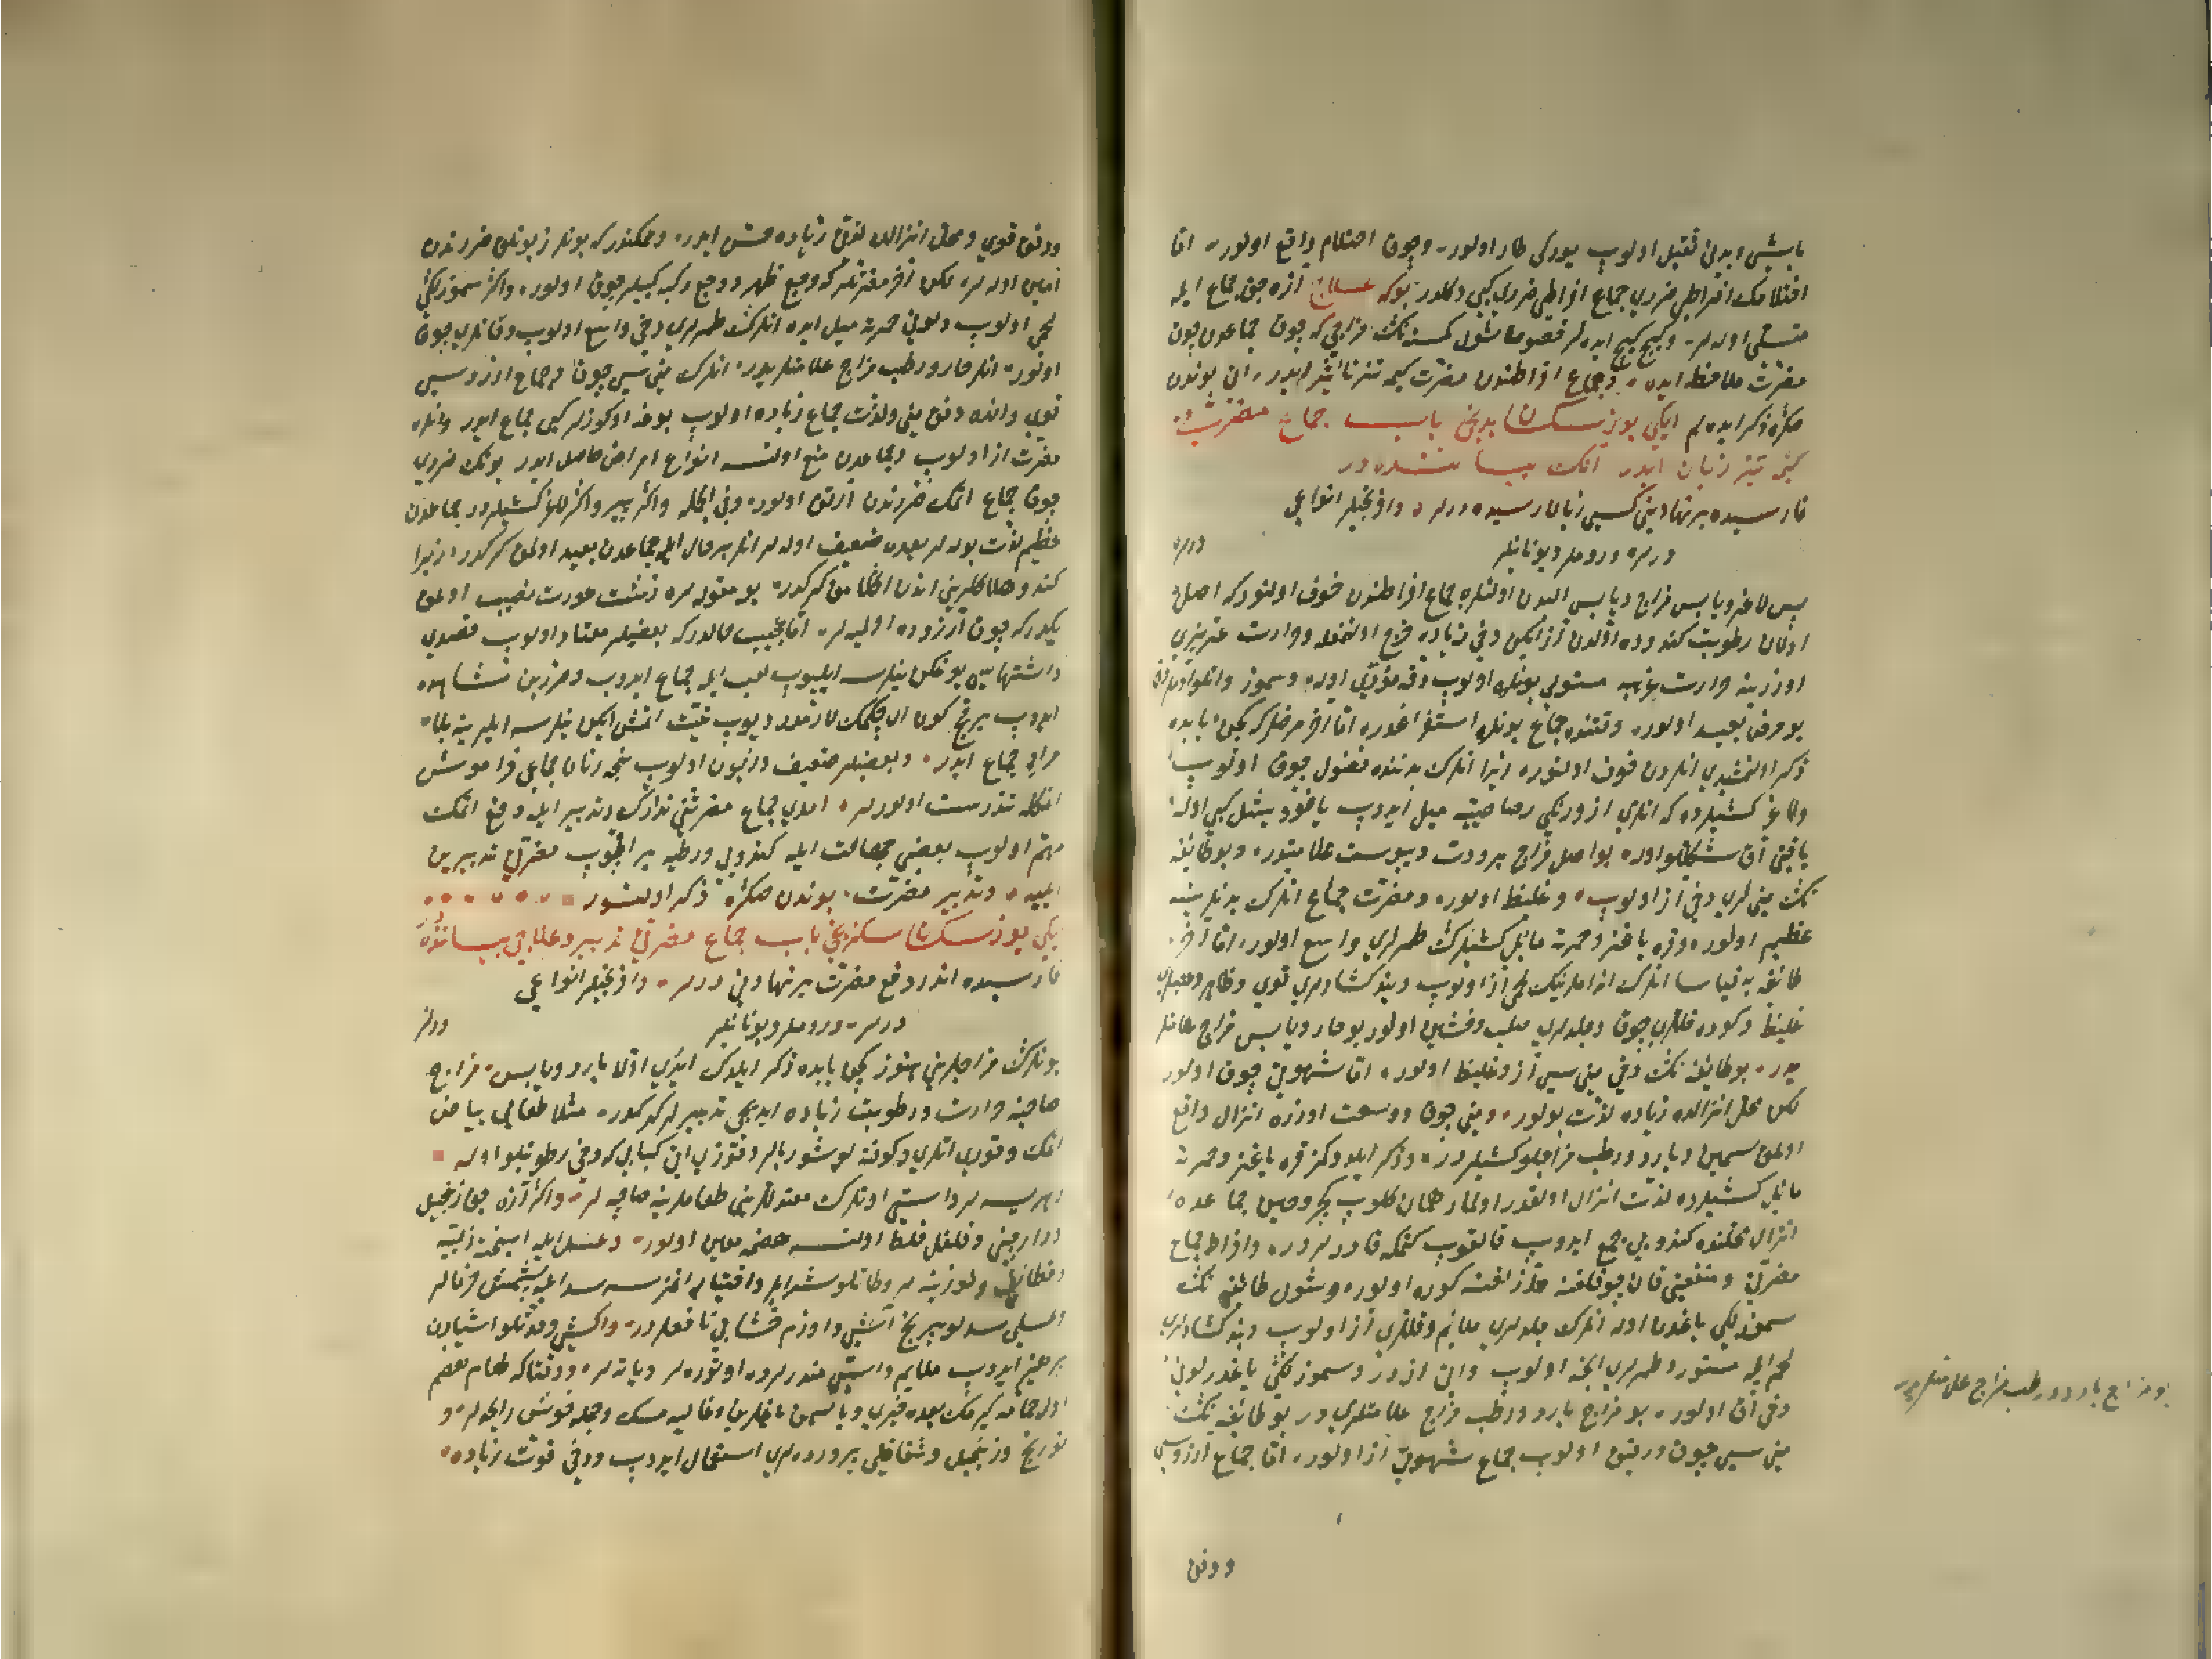 باشی و بدنی ثقیل اولوب یورکی طار اولور و چوق احتلام واقع اولور اما
احتلامك افراطی ضرری جماع افراطی ضرری کبی دکلدر بوکه علاج آزه جق جماع ایله
متسلی اوله لر و کیج کیج ایده لر خصوصا شول کمسنه نك مزاجی که چوق جماعدن چون
مضرت ملاحظه ایده و جماع افراطندن مضرت کیمه تیز تأثیر ایدر انی بوندن
صکره ذکر ایده لم ایکی یوز سکسان یدنجی باب جماع مضرتی
کیمه تیز زیان ایدر انك بیاننده در
فارسیده بر نهادینی کسی زیان رسیده درلر و افرنجیلر انواعی
درلر و روملر و یونانیلر درلر
پس لاغر و یابس مزاج و یابس البدن اولنلره جماع افراطندن خوف اولنور که اصلی
اولان رطوبت کندوده اولدن آز ایکن دخی زیاده خرج اولنمغله و حرارت غریزی
اوزرینه حرارت غریبه مستولی بونلره اولوب دقه مؤدی اوله و سموز و اتلو اولان
بو مرضدن بعید اولور وقتنده جماع بونلره استفراغدر اما اخر مرضلر که یکن بابده
ذکر اولنمشیدی انلردن خوف اولنور زیرا انلرك بدننده فضول چوق اولوب
و لاغر کشیلرده که انلری از و رنکی رصاصیته میل ایدوب یاخود یشل کبی اوله
یاخنی آق شکللو اوله بو اصل مزاج برودت و یبوست علامتیدر و بو طائفه
نك منیلری دخی آز اولوب و غلیظ اولور و مضرت جماع انلرك بدنلرینه
عظیم اولور و قره یاغز و حمرته مائل کشیلرك طمرلری واسع اولور اما آخر
طائفه یه قیاسا انلرك اندامرینك لحمی آز اولوب و بند کشادلری قوی و ظاهر و عصبلری
غلیظ و کوده قللری چوق و جلدلری صلب و خشین اولور بو حار و یابس مزاج علامتلر
یدر بو طائفه نك دخی منیسی آز و غلیظ اولور اما شهوتی چوق اولور
لکن محل انزالده زیاده لذت بولور و منی چوق و وسعت اوزره انزال واقع
اولمق سمین و بارد و رطب مزاجلو کشیلردر و ذکر ایلدوکمز قره یاغز و حمرته
مائل کشیلرده لذت انزال اولقدر اولمار همان کلوب کچر و حین جماعده
انزال محلنده کندویی جمع ایدوب قالقوب کتمکه قادرلردر و افراط جماع
مضرتی و منفعتی قان چوقلغنه و آزلغنه کوره اولور و شول طائفه نك
سموزلکی یاغدن اوله انلرك جلدلری ملایم و قللری آز اولوب و بند کشادلری
لحم ایله مستور و طمرلری انجه اولوب و اتی از در و سموزلکی یاغدر لونی
دخی آق اولور بو مزاج بارد و رطب مزاج علامتلری در بو طائفه نك
منیسی چوق و رقیق اولوب جماع شهوتی از اولور اما جماع ارزوسی
بو مزاج بارد و رطب مزاج علامتلریدر
و دفق
و دفق قوی و محل انزالده لذتی زیاده حس ایدر و ممکندر که بونلر زبونلق ضررندن
امین اوله لر لکن آخر مضرتلر که وجع ظهر و وجع رکبه کبیلر چوق اولور و اکثر سموزلکی
لحمی اولوب و لونی حمرته میل ایده انلرك طمرلری دخی واسع اولوب و قانلری چوق
اولور انلر حار و رطب مزاج علامتلریدر انلرك منیسی چوق و جماع ارزوسی
قوی و انده دفق منی و لذت جماع زیاده اولوب بوغه اوکوزلر کبی جماع ایدر و انلره
مضرت از اولوب و جماعدن منع اولنسه انواع امراض حاصل ایدر بونك ضرری
چوق جماع اتمك ضررندن ارتق اولور و فی الجمله و اکثر پیر و اکثر لاغر کشیلردر جماعدن
عظیم لذت بوله لر بعده ضعیف اوله لر انلر بهر حال ایله جماعدن بعید اولمق کرکدر زیرا
کندو هلاکلرینی اندن اکلامق کرکدر بو مقوله لره زشت عورت نصیب اولمق
یکدر که چوق آرزوده اولمیه لر اما عجیب حالدر که بعضیلر معتاد اولوب قصدی
و اشتهاسی یوغکن نیلرسه ایلیوب لعب ایله جماع ایدوب و ضررین مشاهده
ایدوب بر نیچه کون ال چکمك لازمدر دیوب نیت اتمش ایکن نیلرسه ایلر ینه بلا
مراد جماع ایدر و بعضیلر ضعیف و زبون اولوب نیچه زمان جماعی فراموش
اتمکله تندرست اولورلر امدی جماع مضرتنی تدارك و تدبیر ایله دفع اتمك
مهم اولوب بعضی جهالت ایله کندویی ورطه یه براغوب مضرتی تدبیرین
ایلمیه و تدبیر مضرت بوندن صکره ذکر اولنور
ایکی یوز سکسان سکزنجی باب جماع مضرتی تدبیر و علاجی بیاننده در
فارسیده اندر دفع مضرت بر نهادنی درلر و افرنجیلر انواعی
درلر و روملر و یونانیلر درلر
بونلرك مزاجلرینی هنوز یکن بابده ذکر ایلدك ایدی اولا بارد و یابس مزاج
صاحبنه حرارت و رطوبت زیاده ایدیجی تدبیرلر کرکدر مثلا طعامی بیاض
اتمك و قوزی اتلری و کونه لو شوربالر و قوزی اتی کبابی که دخی رطوبتلو اوله
و هریسه لر و اسسی اوتلرك معتدللرینی طعاملرینه صاچه لر و اکثر آزه جق زنجبیل
و دارچینی و فلفل خلط اولنسه هضمه معین اولور و عسل ایله اسفنجه زلبیه
و قطائف و لوزینه لر و طاتلو شرابلر و اقتضا اتمزسه سد ایله پشمش خرمالر
عسلی سدلو پرنج آشی و اوزم خشابی نافعلردر و اکشی و قوتلو اشیادن
پرهیز ایدوب ملایم و اسسی مندرلرده اوتوره لر و یاته لر و وقتاکه طعام هضم
اوله حمامه کیرمك بعده خیری و یاسمن یاغلرین و غالیه مسك و جمله خوش رایحه لر و
تورنج و زنجبیل و شقاقل پرورده لری استعمال ایدوب دخی قوت زیاده